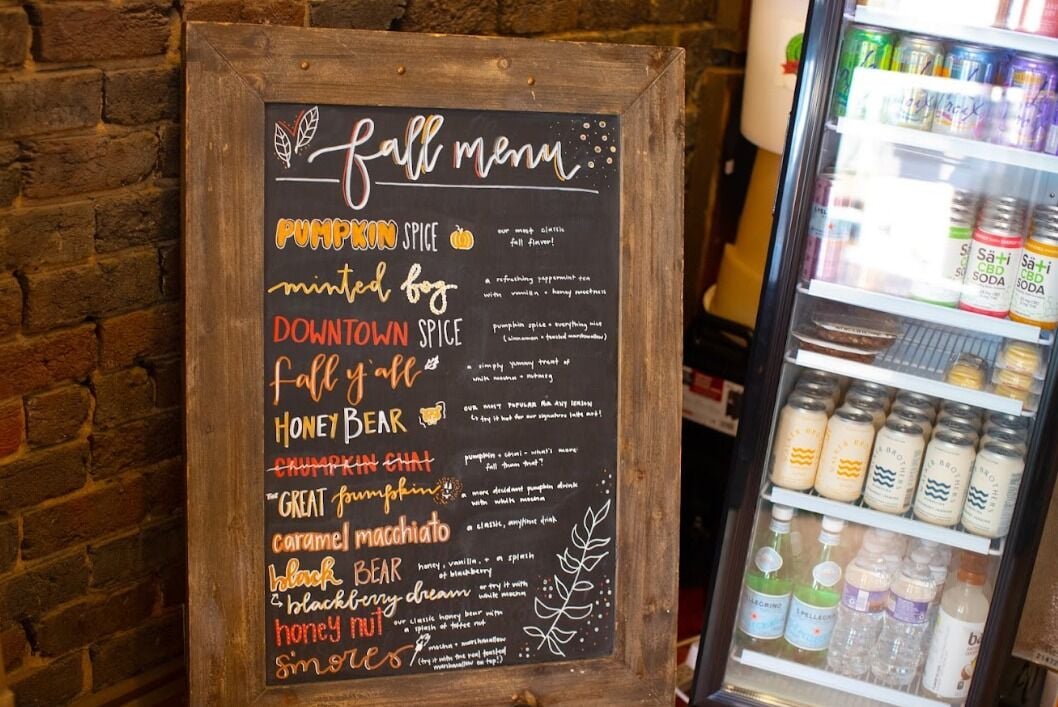 fall menu
PUMPKIN SPICE
our most classic
fall flavor!
minted fog
a refreshing peppermint tea
with vanilla + honey sweetness
DOWNTOWN SPICE
pumpkin spice + everything nice
(cinnamon + toasted marshmallow)
fall y'all
a simply yummy treat of
white mocha + nutmeg
HONEY BEAR
OUR MOST POPULAR FOR ANY SEASON
try it hot for our signature latte art!
CHUMPKIN CHAI
pumpkin + chai - what's more
fall than that?
THE GREAT pumpkin
a more decadent pumpkin drink
with white mocha
caramel macchiato
a classic, anytime drink
black BEAR
honey, vanilla, + a splash
of blackberry
& blackberry dream
or try it with
white mocha
honey nut
our classic honey bear with
a splash of toffee nut
s'mores
mocha + marshmallow
(try it with the real toasted
marshmallow on top!)
LaCroix
Sä+i
CBD
SODA
Sä+i
CBD
SODA
BROTHERS
S.PELLEGRINO
S.PELLEGRINO